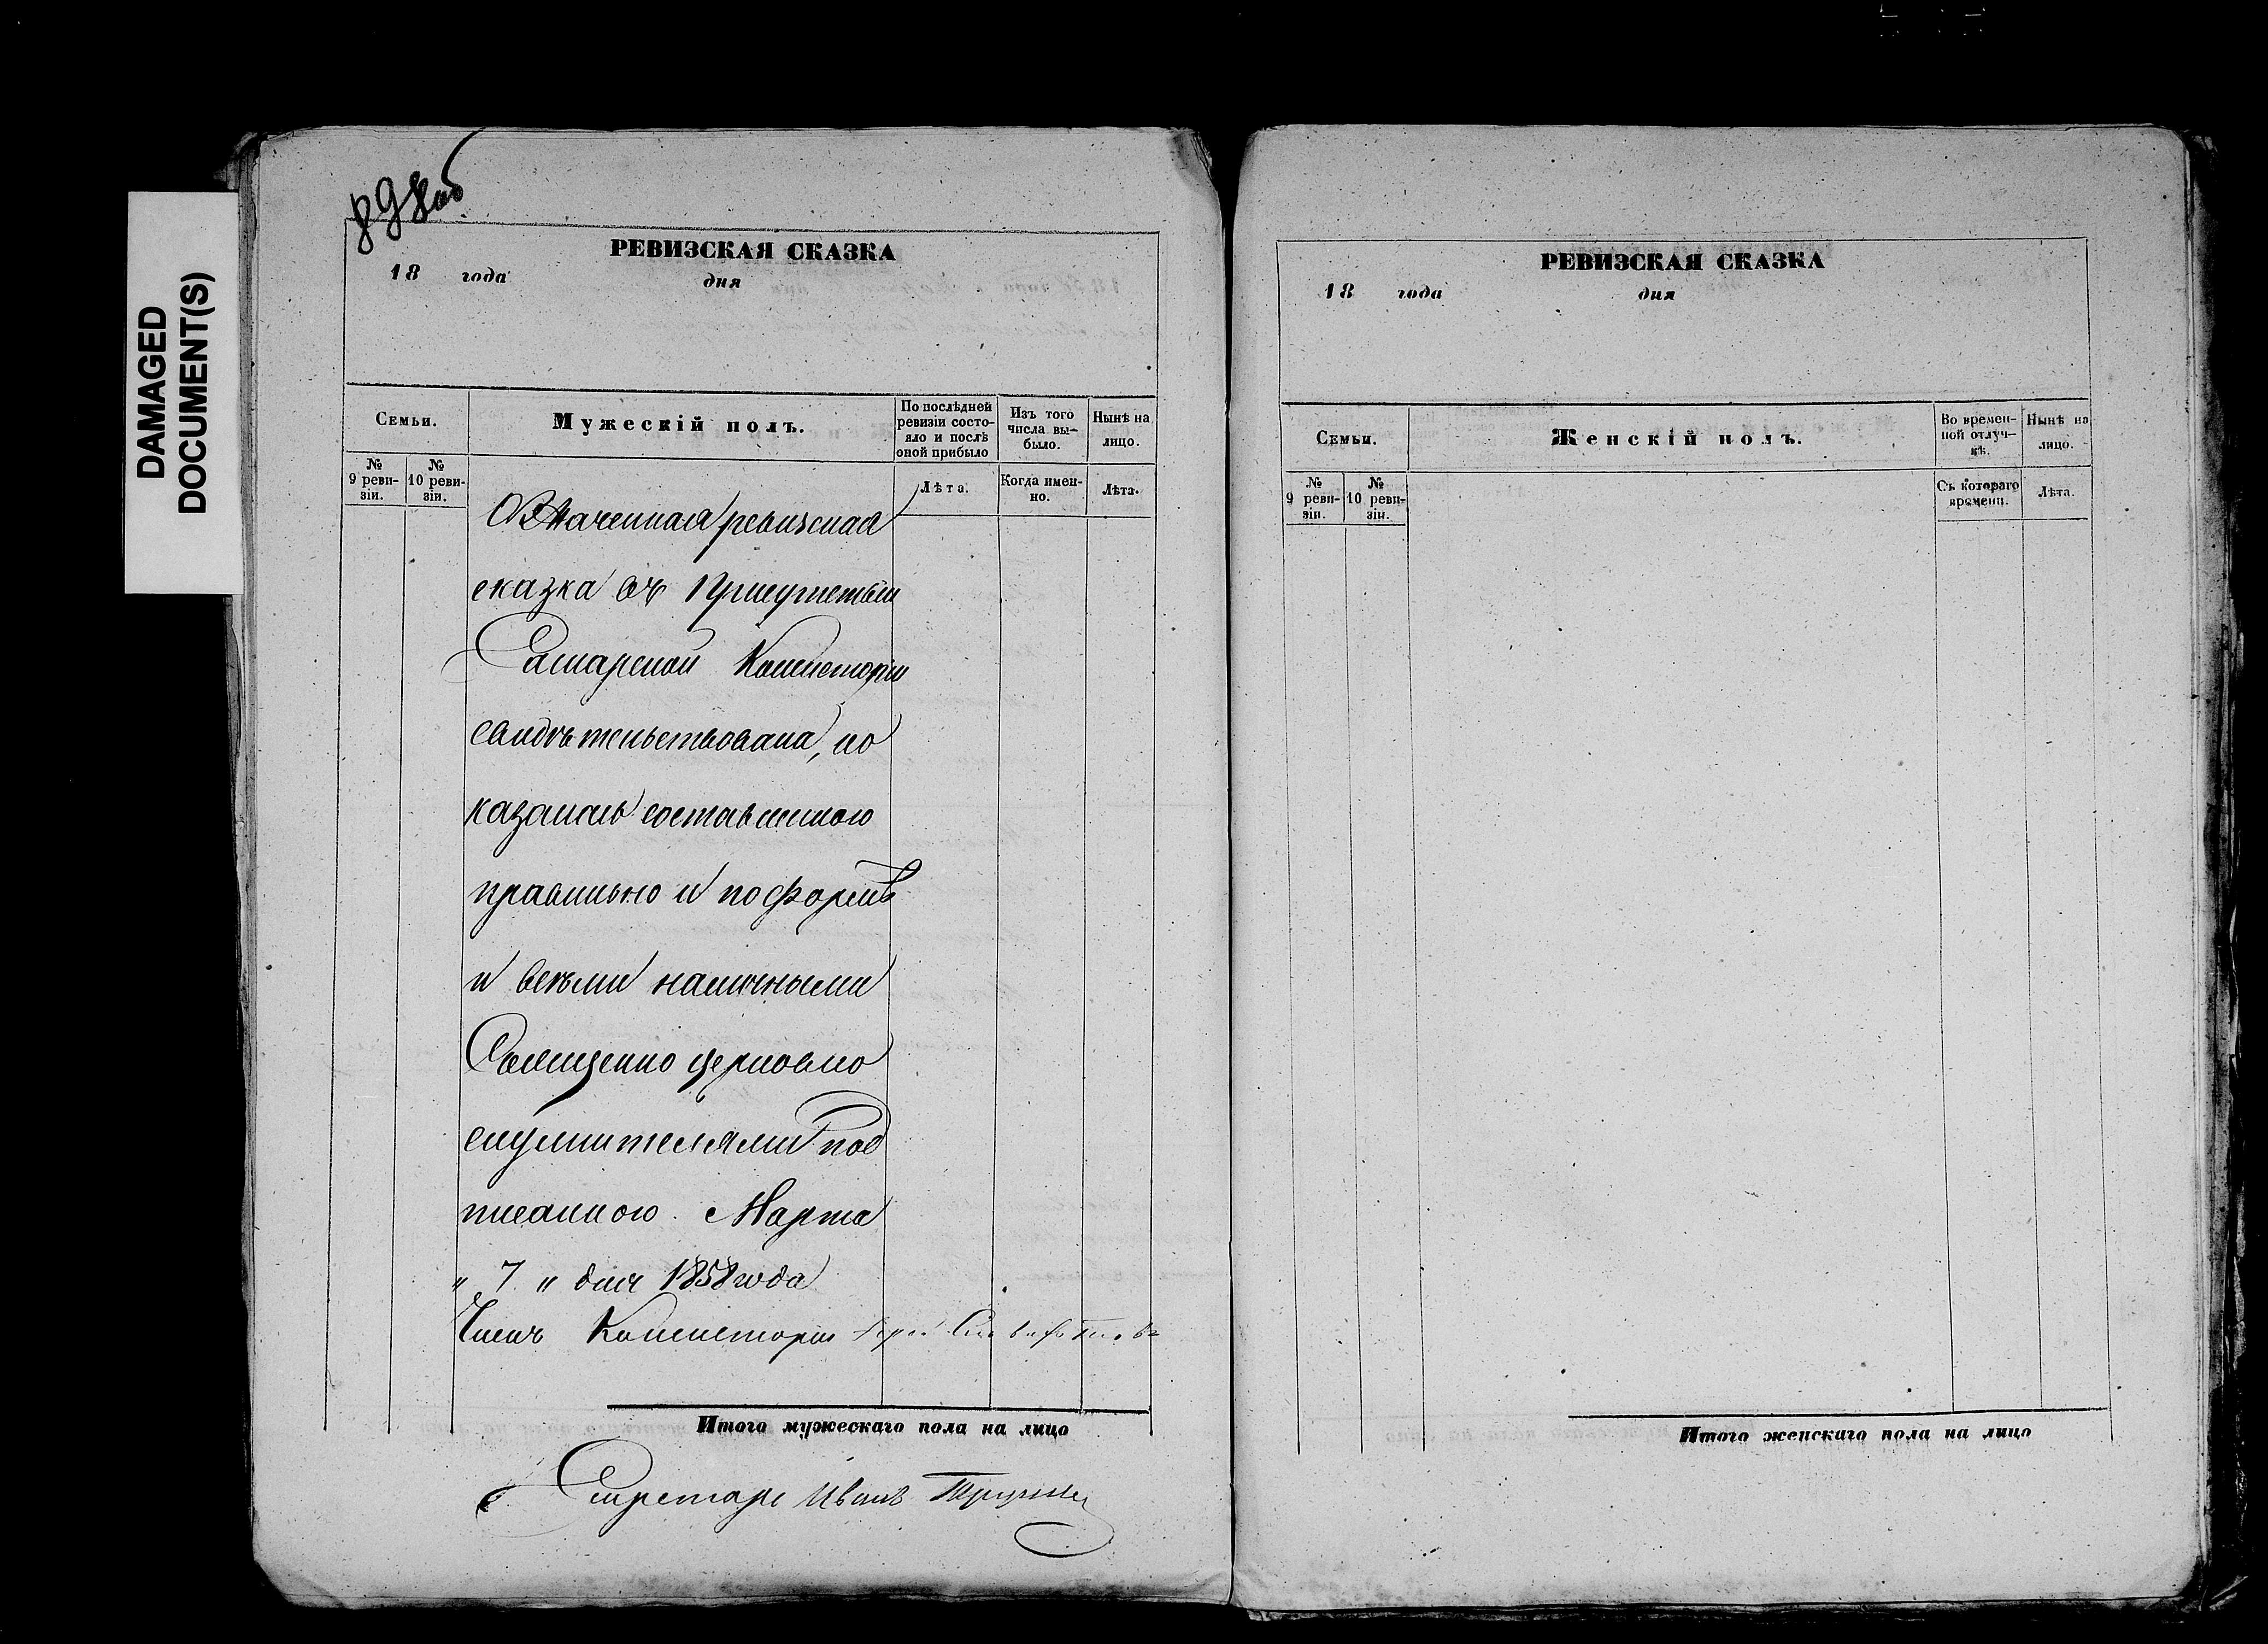 DAMAGED
DOCUMENT(S)
898об
РЕВИЗСКАЯ СКАЗКА
18 года дня
Семьи.
Мужескій полъ.
По послѣдней
ревизіи состо-
яло и послѣ
оной прибыло
Изъ того
числа вы-
было.
Нынѣ на
лицо.
№
9 реви-
зіи.
№
10 реви-
зіи.
Лѣта.
Когда имен-
но.
Лѣта.
Означенная ревизская
сказка въ Присутствіи
Самарской Консисторіи
свидѣтельствована, по
казалась составленною
правильно и по формѣ
и всѣми наличными
Священно церковно
служителями под
писанною. Марта
„ 7 „ дня 1858 года
Членъ Консисторіи
Итого мужескаго пола на лицо
Секретарь Иванъ
РЕВИЗСКАЯ СКАЗКА
18 года дня
Семьи.
Женскій полъ.
Во времен-
ной отлуч-
кѣ.
Нынѣ на
лицо.
№
9 реви-
зіи.
№
10 реви-
зіи.
Съ котораго
времени.
Лѣта.
Итого женскаго пола на лицо